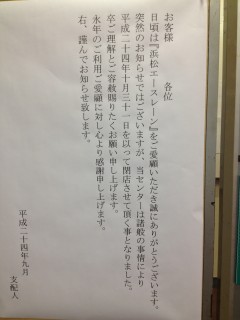 お客様　各位
日頃は『浜松エースレーン』をご愛顧いただき誠にありがとうございます。
突然のお知らせではございますが、当センターは諸般の事情により
平成二十四年十月三十一日を以って閉店させて頂く事となりました。
卒ご理解とご容赦賜りたくお願い申し上げます。
永年のご利用ご愛顧に対し心より感謝申し上げます。
右、謹んでお知らせ致します。
平成二十四年九月
支配人